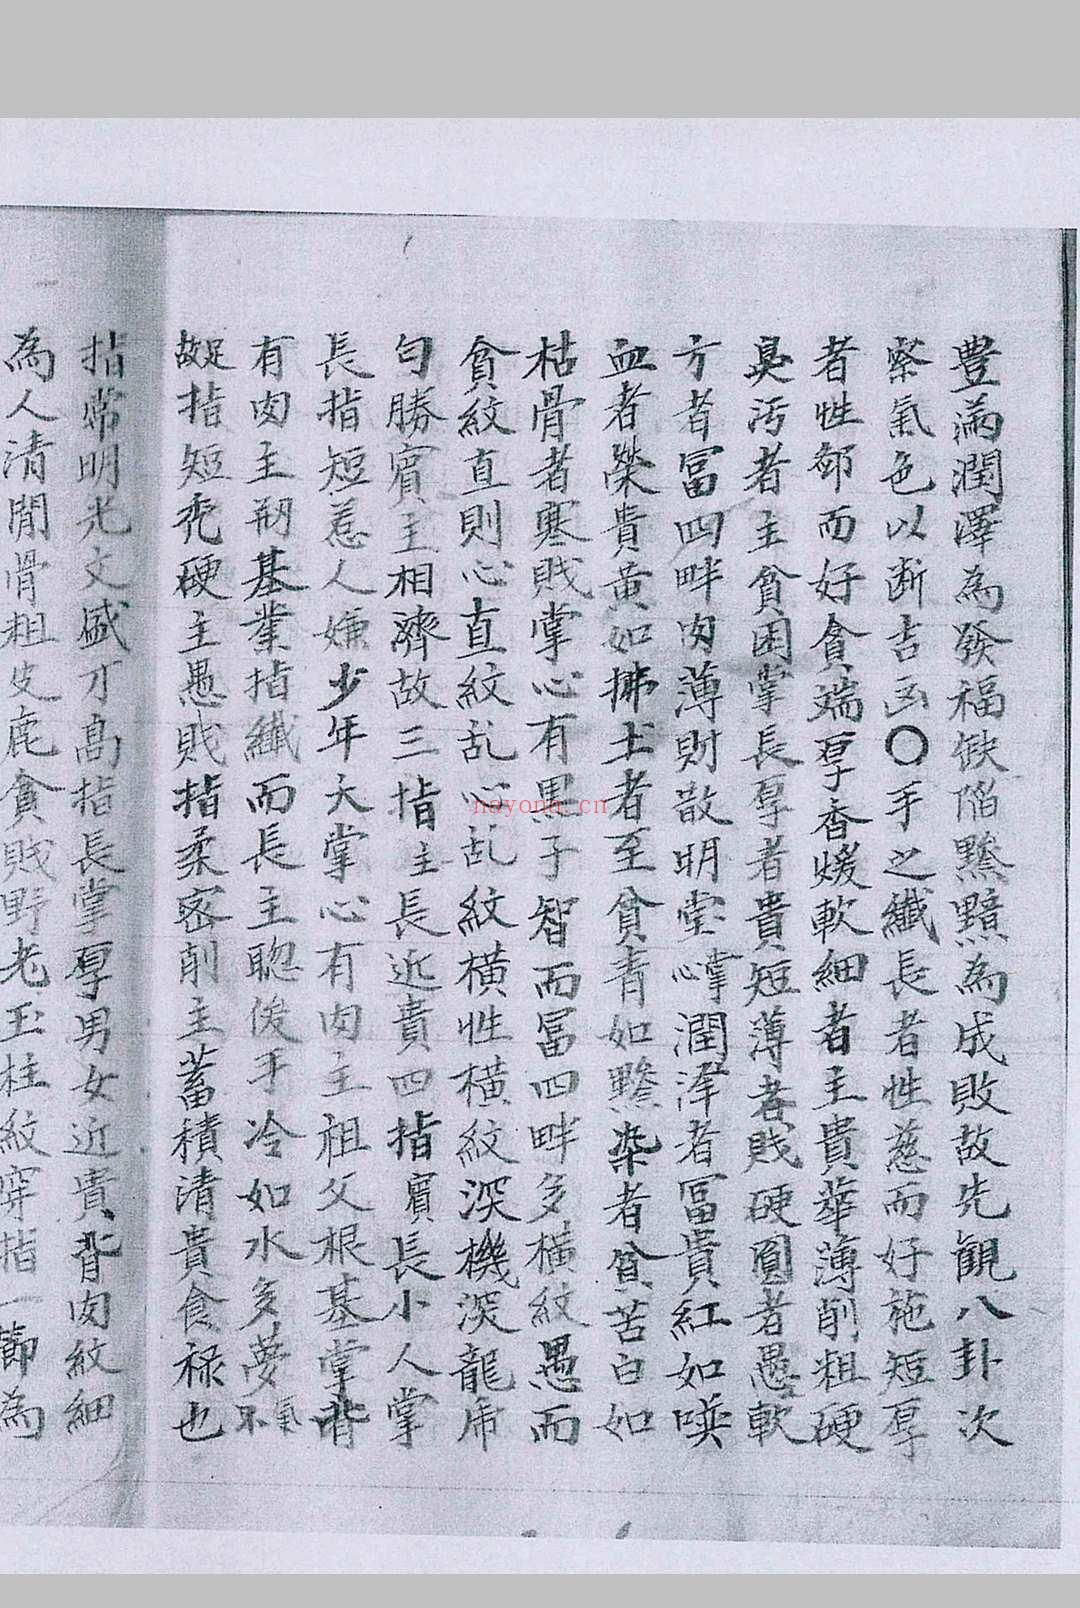 豊滿潤澤為發福缺陷黲黯為成敗故先觀八卦次
察氣色以断吉凶〇手之纖長者性慈而好施短厚
者性郤而好貪端厚香煖軟細者主貴華薄削粗硬
臭污者主貧困掌長厚者貴短薄者賎硬圓者愚軟
方者冨四畔肉薄財散明堂掌心潤泽者冨貴紅如噀
血者榮貴黃如拂土者至貧青如黲染者貧苦白如
枯骨者寒賎掌心有黒子智而冨四畔多橫紋愚而
貪紋直則心直紋乱心乱紋橫性橫紋深機深龍虎
勻勝賓主相濟故三指主長近貴四指賓長小人掌
長指短惹人嫌少年夭掌心有肉主祖父根基掌背
有肉主刱基業指纖而長主聰俊手冷如水多夢氣不
足故指短秃硬主愚賎指柔密削主蓄積清貴食禄也
指常明光文盛才高指長掌厚男女近貴背肉紋細
為人清閒骨粗皮鹿貪賎野老玉柱紋穿指一節為
nayona.cn